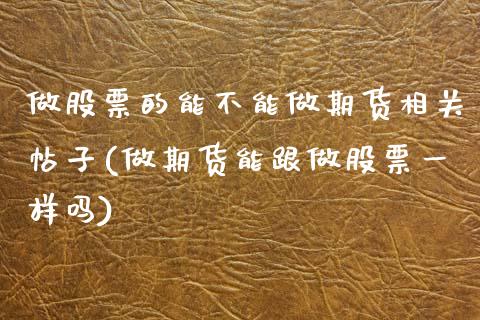 做股票的能不能做期货相关
帖子(做期货能跟做股票一
样吗)